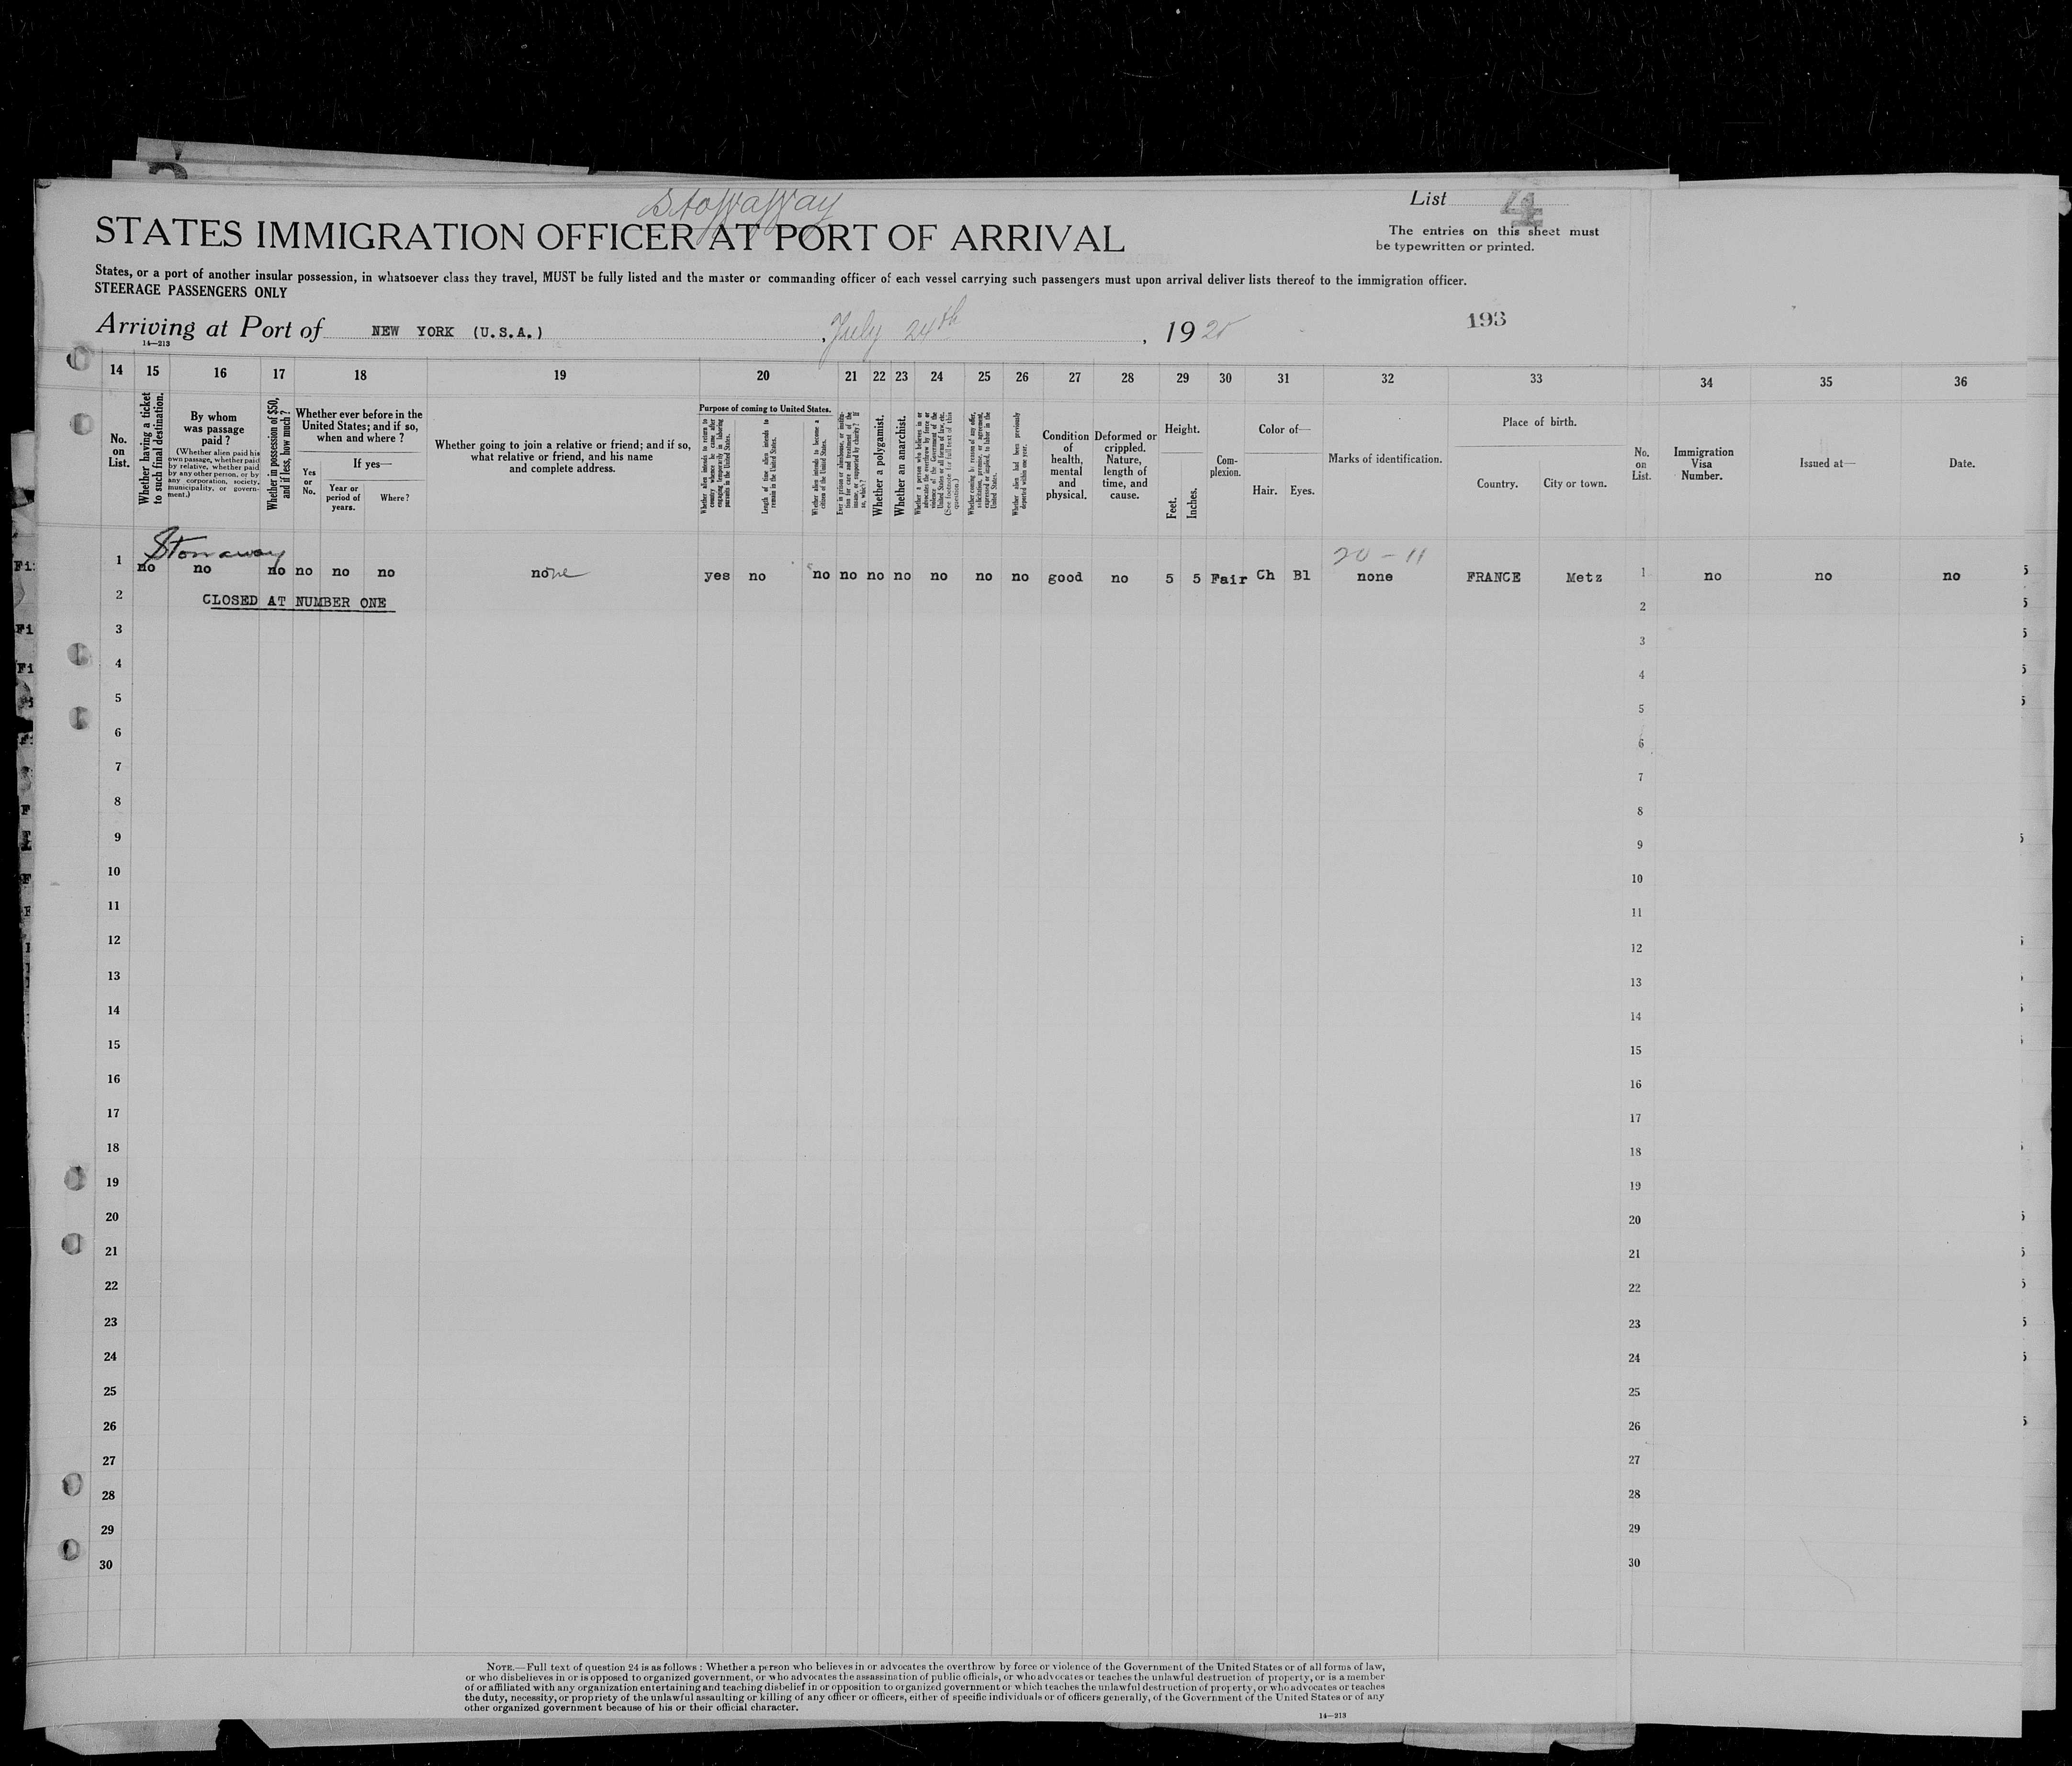 Stowaway
List 4
STATES IMMIGRATION OFFICER AT PORT OF ARRIVAL
The entries on this sheet must
be typewritten or printed.
States, or a port of another insular possession, in whatsoever class they travel, MUST be fully listed and the master or commanding officer of each vessel carrying such passengers must upon arrival deliver lists thereof to the immigration officer.
STEERAGE PASSENGERS ONLY
Arriving at Port of NEW YORK (U.S.A.), July 24th, 19
193
14—213
14 15 16 17 18 19 20 21 22 23 24 25 26 27 28 29 30 31 32 33 34 35 36
No. on List.
Whether having a ticket to such final destination.
By whom was passage paid?
(Whether alien paid his own passage, whether paid by relative, whether paid by any other person, or by any corporation, society, municipality, or government.)
Whether in possession of $50, and if less, how much?
Whether ever before in the United States; and if so, when and where?
Yes or No.
If yes—
Year or period of years.
Where?
Whether going to join a relative or friend; and if so, what relative or friend, and his name and complete address.
Purpose of coming to United States.
Whether alien intends to return to country whence he came after engaging temporarily in laboring pursuits in the United States.
Length of time alien intends to remain in the United States.
Whether alien intends to become a citizen of the United States.
Ever in prison or almshouse, or institution for care and treatment of the insane, or supported by charity? If so, which?
Whether a polygamist.
Whether an anarchist.
Whether a person who believes in or advocates the overthrow by force or violence of the Government of the United States or all forms of law, etc. (See footnote for full text of this question.)
Whether coming by reason of any offer, solicitation, promise, or agreement, expressed or implied, to labor in the United States.
Whether alien had been previously deported within one year.
Condition of health, mental and physical.
Deformed or crippled. Nature, length of time, and cause.
Height.
Feet.
Inches.
Complexion.
Color of—
Hair.
Eyes.
Marks of identification.
Place of birth.
Country.
City or town.
No. on List.
Immigration Visa Number.
Issued at—
Date.
Stowaway
20 - 11
1 no no no no no no none yes no no no no no no no no good no 5 5 Fair Ch Bl none FRANCE Metz 1 no no no
2 CLOSED AT NUMBER ONE 2
3 3
4 4
5 5
6 6
7 7
8 8
9 9
10 10
11 11
12 12
13 13
14 14
15 15
16 16
17 17
18 18
19 19
20 20
21 21
22 22
23 23
24 24
25 25
26 26
27 27
28 28
29 29
30 30
NOTE.—Full text of question 24 is as follows: Whether a person who believes in or advocates the overthrow by force or violence of the Government of the United States or of all forms of law,
or who disbelieves in or is opposed to organized government, or who advocates the assassination of public officials, or who advocates or teaches the unlawful destruction of property, or is a member
of or affiliated with any organization entertaining and teaching disbelief in or opposition to organized government or which teaches the unlawful destruction of property, or who advocates or teaches
the duty, necessity, or propriety of the unlawful assaulting or killing of any officer or officers, either of specific individuals or of officers generally, of the Government of the United States or of any
other organized government because of his or their official character.
14—213